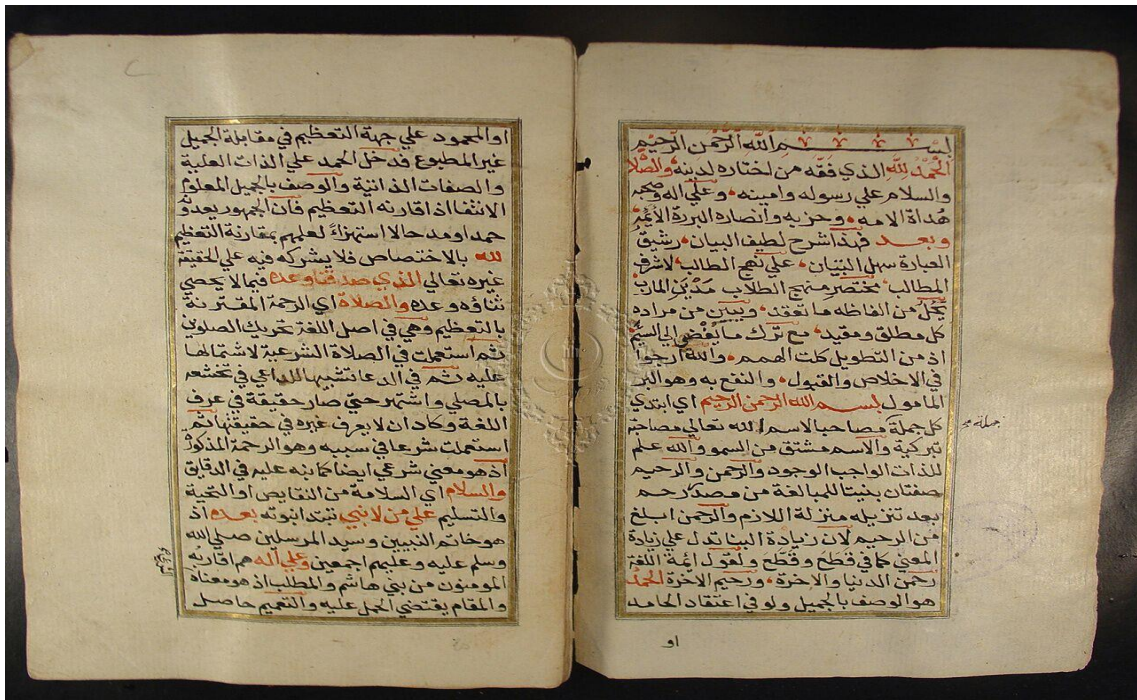 بسم الله الرحمن الرحيم
الحمد لله الذي فقه من اختاره لدينه والصلا
والسلام علي رسوله وامينه وعلي اله وصحبه
هداة الامه وحزبه وانصاره البررة الأيمة
وبعد فهذا شرح لطيف البيان رشيق
العبارة سهل التبيان علي نهج الطالب لاشرف
المطالب مختصر منهج الطلاب مدين المارب
يحل من الفاظه ما تعقد ويبين من مراده
كل مطلق ومقيد مع ترك ما يفضي الي السآم
اذ من التطويل كلت الهمم والله ارجوا
في الاخلاص والقبول والنفع به وهو البر
المامول بسم الله الرحمن الرحيم اي ابتدي
كل جملة مصاحبا لاسم الله تعالي مصاحبة
تبركية والاسم مشتق من السمو والله علم
للذات الواجب الوجود والرحمن والرحيم
صفتان بنيتا للمبالغة من مصدر رحم
بعد تنزيله منزلة اللازم والرحمن ابلغ
من الرحيم لان زيادة البنا تدل علي زيادة
المعني كما في قطع و قطع ولقول ايمة اللغة
رحمن الدنيا والاخرة ورحيم الاخرة الحمد
هو الوصف بالجميل ولو في اعتقاد الحامد
جملة
او
او المحمود علي جهة التعظيم في مقابلة الجميل
غير المطبوع فدخل الحمد علي الذات العلية
والصفات الذاتية والوصف بالجميل المعلوم
الانتفا اذا قارنه التعظيم فان الجمهور يعدونه
حمدا ومدحا لا استهزاءً لعلمهم بمقارنة التعظيم
لله بالاختصاص فلا يشركه فيه علي الحقيقة
غيره تعالي الذي صدقنا وعده فيما لا يحصي
ثناؤه وعده والصلاة اي الرحمة المقترنة
بالتعظيم وهي في اصل اللغة تحريك الصلوين
ثم استعملت في الصلاة الشرعية لاشتمالها
عليه ثم في الدعا تشبيها للداعي في تخشعه
بالمصلي واشتهر حتي صار حقيقة في عرف
اللغة وكاد ان لا يعرف غيره في حقيقتها ثم
استعملت شرعا في سببيه وهو الرحمة المذكورة
اذ هو معني شرعي ايضا كما نبه عليه في الدقايق
والسلام اي السلامة من النقايص او التحية
والتسليم علي من لا نبي تبتدا نبوته بعده اذ
هو خاتم النبيين وسيد المرسلين صلي الله
وسلم عليه وعليهم اجمعين وعلي آله هم اقاربه
المومنون من بني هاشم والمطلب اذ هو معناه
والمقام يقتضي الحمل عليه والتعميم حاصل